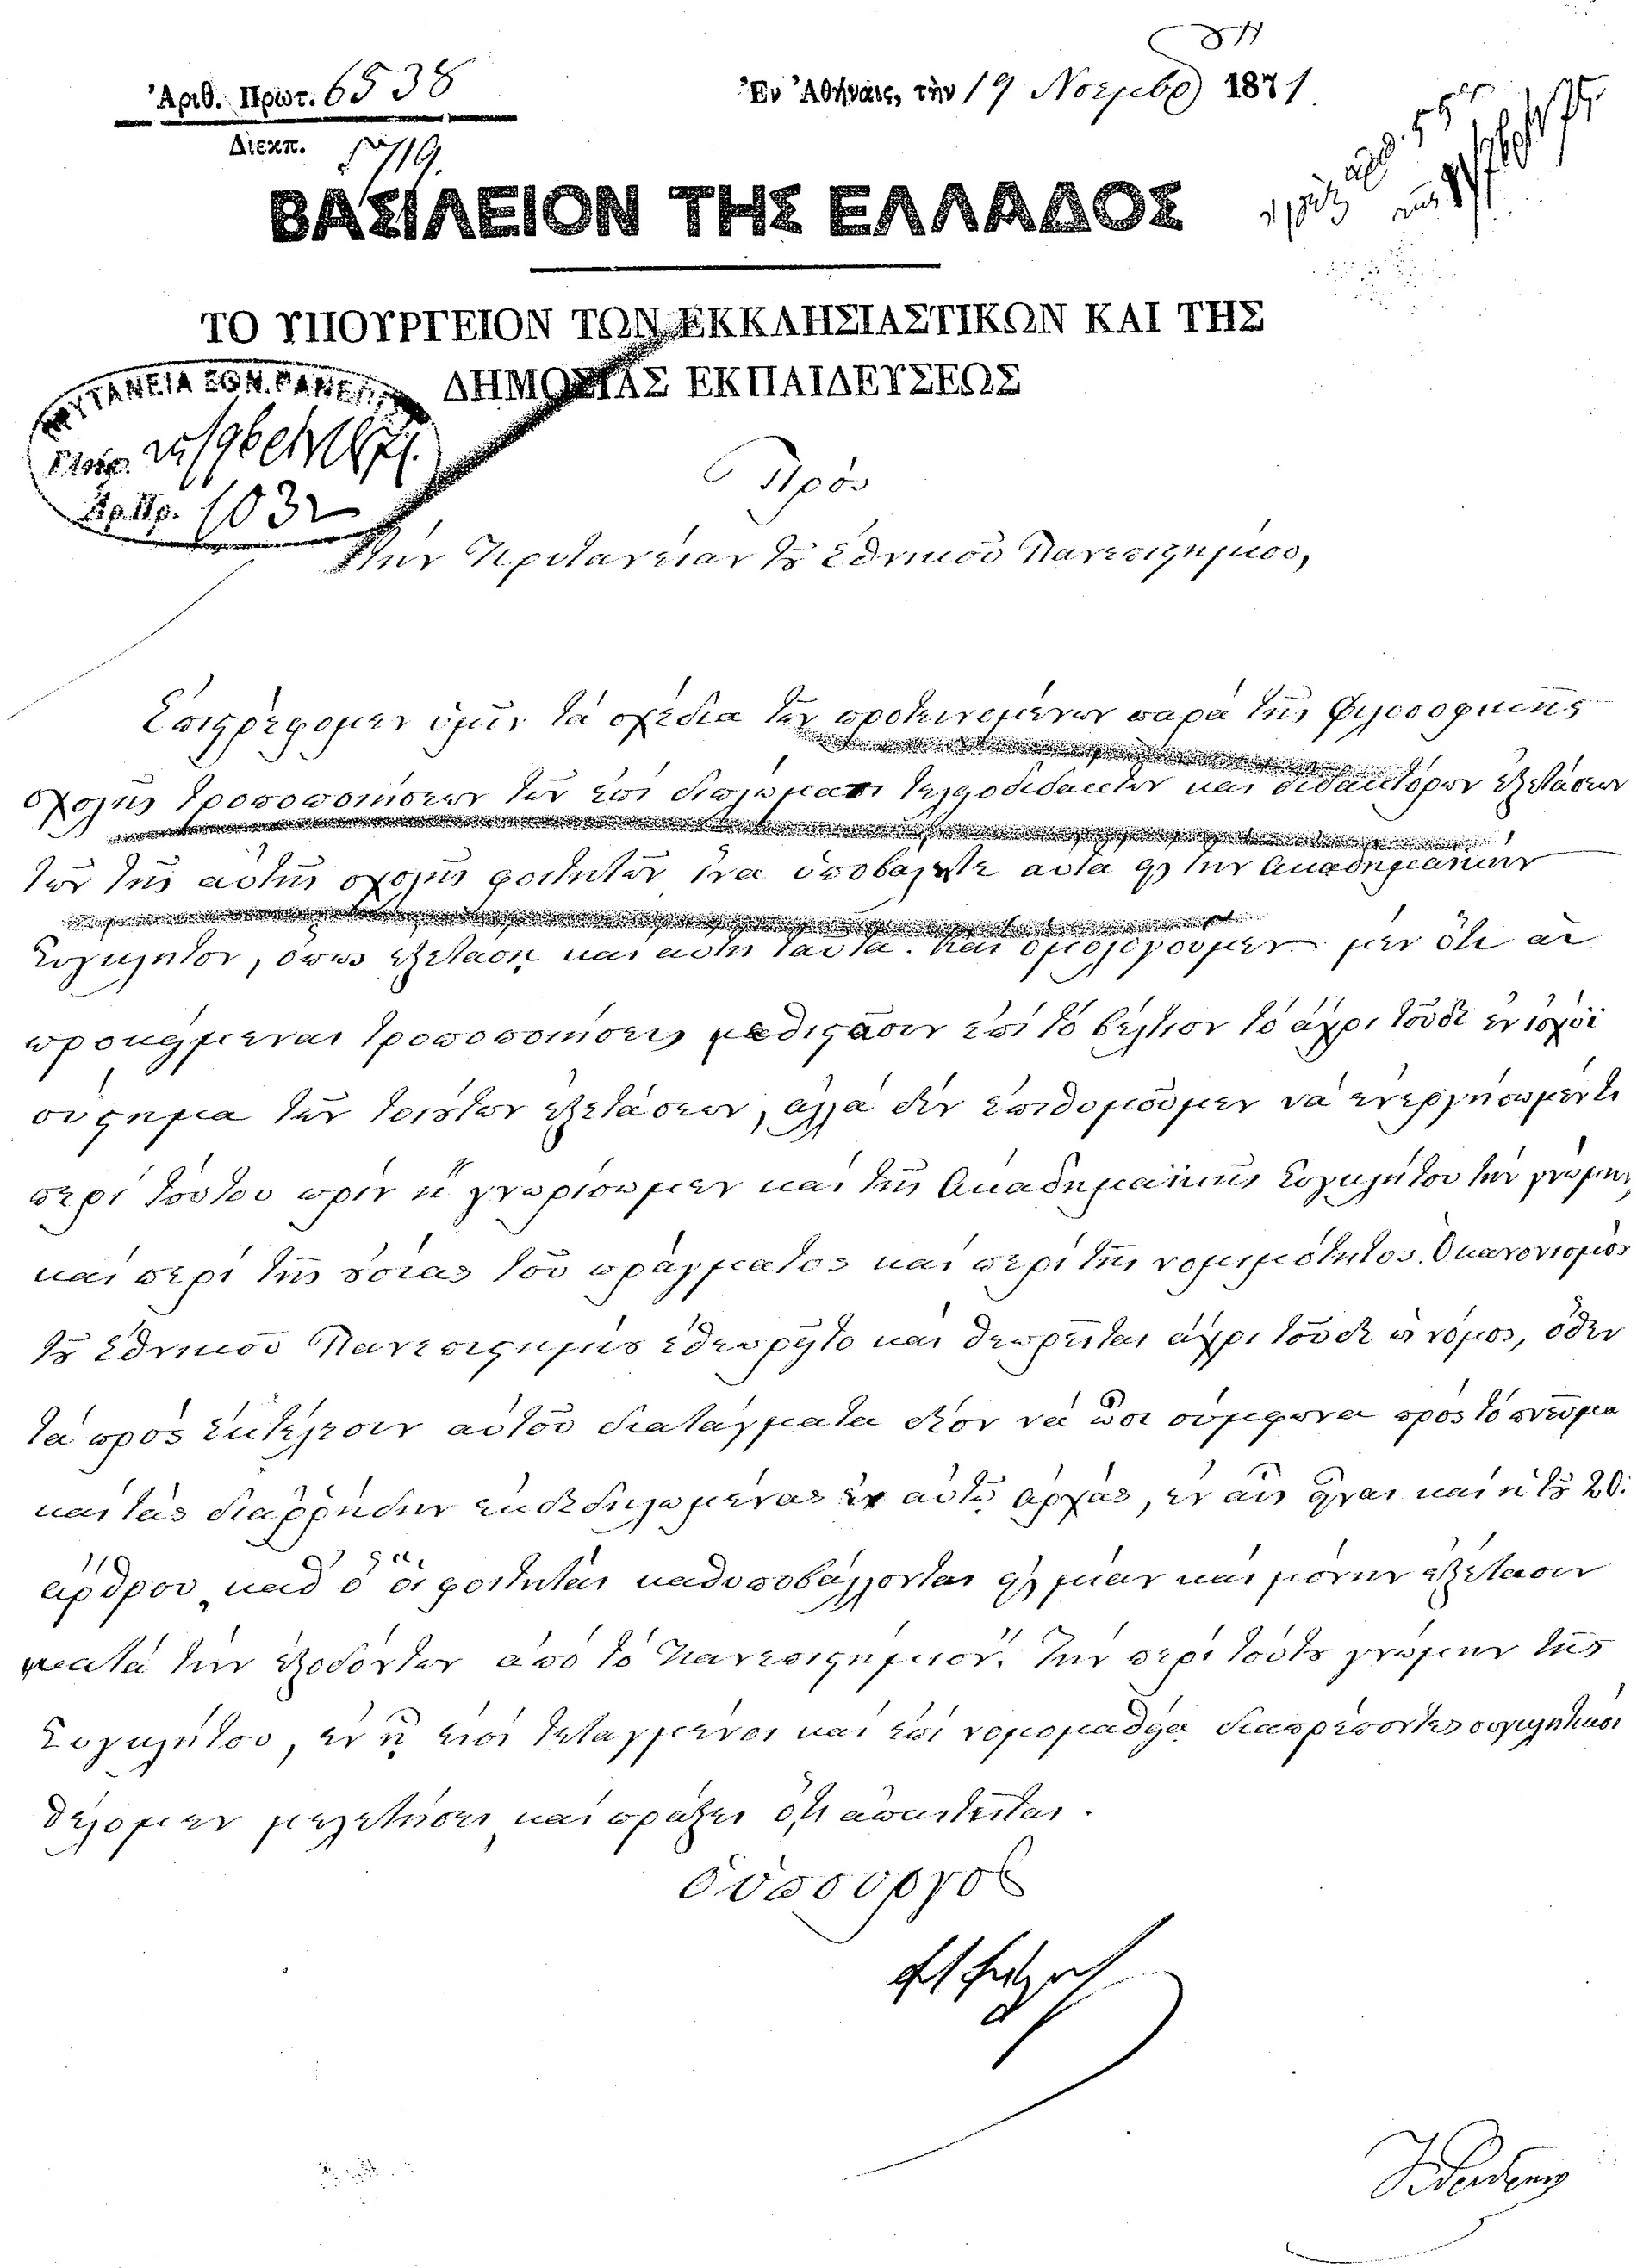 Ἀριθ. Πρωτ. 6538
Διεκπ. 5719.
Ἐν Ἀθήναις, τὴν 19 Νοεμβρ 1871
ΒΑΣΙΛΕΙΟΝ ΤΗΣ ΕΛΛΑΔΟΣ
ΤΟ ΥΠΟΥΡΓΕΙΟΝ ΤΩΝ ΕΚΚΛΗΣΙΑΣΤΙΚΩΝ ΚΑΙ ΤΗΣ
ΔΗΜΟΣΙΑΣ ΕΚΠΑΙΔΕΥΣΕΩΣ
ΠΡΥΤΑΝΕΙΑ ΕΘΝ. ΠΑΝΕΠΙΣ
Ἀρ.Πρ. 1032
Πρὸς
τὴν Πρυτανείαν τοῦ Ἐθνικοῦ Πανεπιστημίου,
Ἐπιστρέφομεν ὑμῖν τὰ σχέδια τῶν προτεινομένων παρὰ τῆς Φιλοσοφικῆς
σχολῆς τροποποιήσεων τῶν ἐπὶ διπλώματι τελειοδιδάκτων καὶ διδακτόρων ἐξετάσεων
τῶν τῆς αὐτῆς σχολῆς φοιτητῶν ἵνα ὑποβάλητε αὐτὰ εἰς τὴν Ἀκαδημαϊκὴν
Σύγκλητον, ὅπως ἐξετάσῃ καὶ αὐτὴ ταῦτα. Καὶ ὁμολογοῦμεν μὲν ὅτι αἱ
προκείμεναι τροποποιήσεις μεθιστᾶσιν ἐπὶ τὸ βέλτιον τὸ ἄχρι τοῦδε ἐν ἰσχύϊ
σύστημα τῶν τοιούτων ἐξετάσεων, ἀλλὰ δὲν ἐπιθυμοῦμεν νὰ ἐνεργήσωμέν τι
περὶ τούτου πρὶν ἢ γνωρίσωμεν καὶ τῆς Ἀκαδημαϊκῆς Συγκλήτου τὴν γνώμην,
καὶ περὶ τῆς οὐσίας τοῦ πράγματος καὶ περὶ τῆς νομιμότητος. Ὁ κανονισμὸς
τοῦ Ἐθνικοῦ Πανεπιστημίου ἐθεωρεῖτο καὶ θεωρεῖται ἄχρι τοῦδε ὡς νόμος, ὅθεν
τὰ πρὸς ἐκτέλεσιν αὐτοῦ διατάγματα δέον νὰ ὦσι σύμφωνα πρὸς τὸ πνεῦμα
καὶ τὰς διαῤῥήδην ἐκδεδηλωμένας ἐν αὐτῷ ἀρχάς, ἐν αἷς εἶναι καὶ ἡ τοῦ 20:
ἄρθρου, καθ' ὃ „οἱ φοιτηταὶ καθυποβάλλονται εἰς μίαν καὶ μόνην ἐξέτασιν
κατὰ τὴν ἐξοδόν των ἀπὸ τὸ Πανεπιστήμιον". Τὴν περὶ τούτου γνώμην τῆς
Συγκλήτου, ἐν ᾗ εἰσὶ τεταγμένοι καὶ ἐπὶ νομομαθείᾳ διαπρέποντες συγκλητικοὶ
θέλομεν μελετήσει, καὶ πράξει ὅ,τι ἀπαιτεῖται.
Ὁ ὑπουργὸς